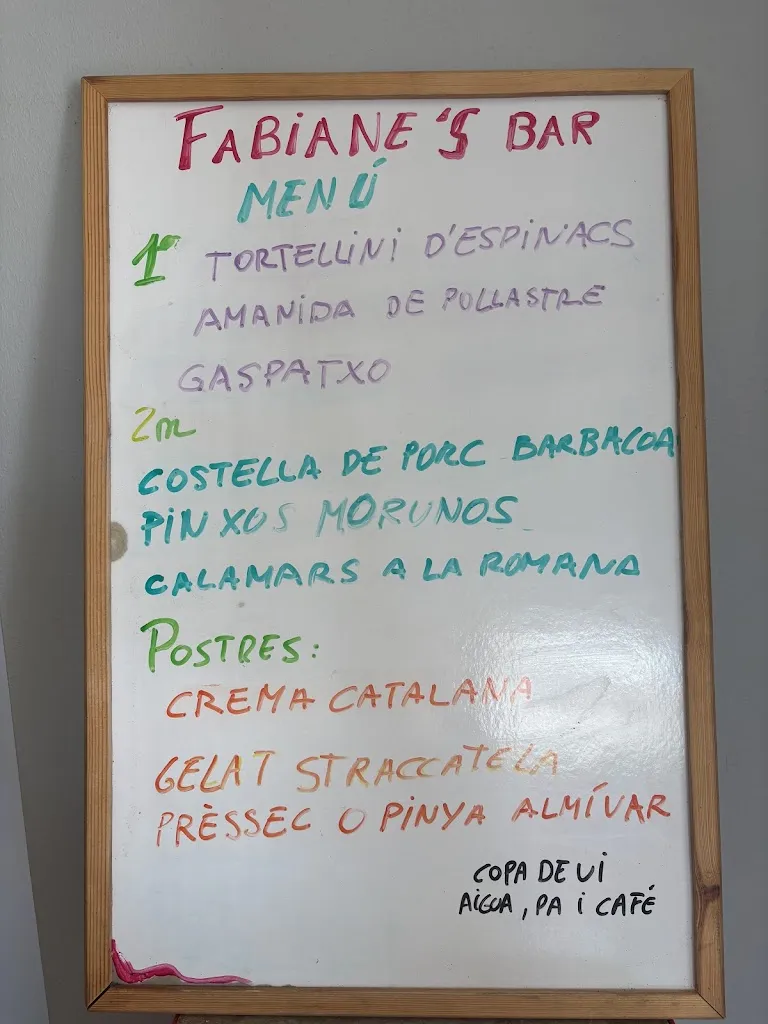 FABIANE'S BAR
MENÚ
1r TORTELLINI D'ESPINACS
AMANIDA DE POLLASTRE
GASPATXO
2n
COSTELLA DE PORC BARBACOA
PINXOS MORUNOS
CALAMARS A LA ROMANA
POSTRES:
CREMA CATALANA
GELAT STRACCATELA
PRÈSSEC O PINYA ALMÍVAR
COPA DE VI
AIGUA, PA I CAFÉ